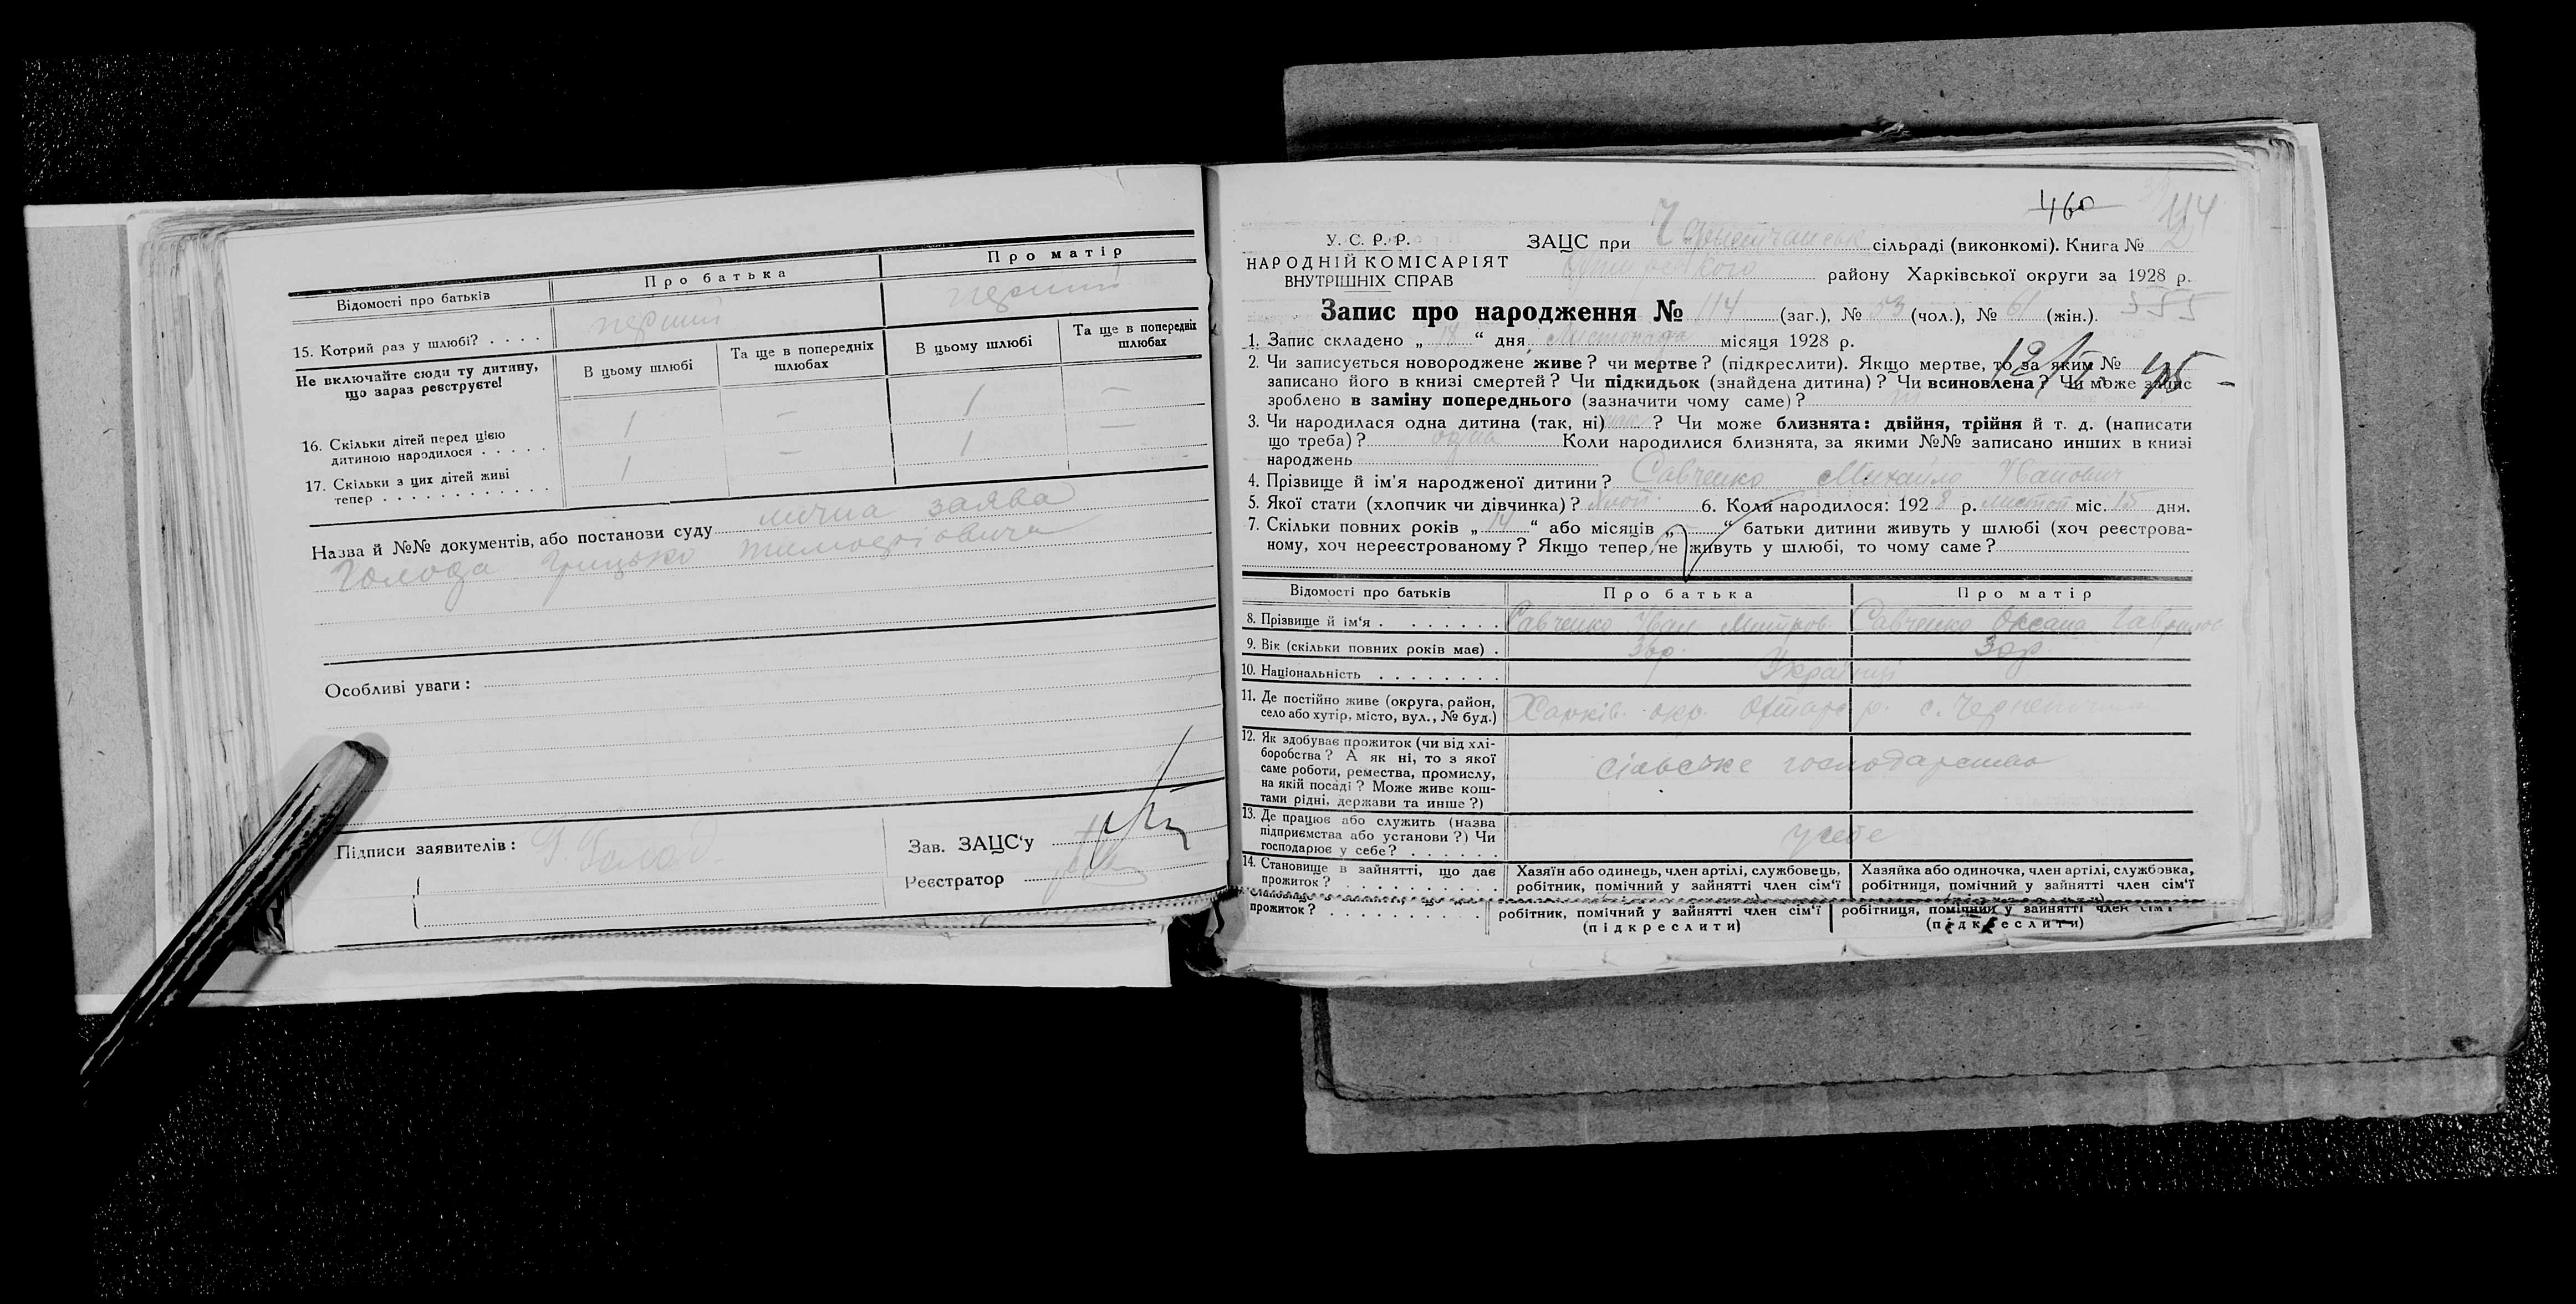 Відомості про батьків
Про батька
Про матір
15. Котрий раз у шлюбі? . . . .
перший
перший
Не включайте сюди ту дитину,
що зараз реєструєте!
В цьому шлюбі
Та ще в попередніх
шлюбах
В цьому шлюбі
Та ще в попередніх
шлюбах
16. Скільки дітей перед цією
дитиною народилося . . . . .
1
—
1
—
17. Скільки з цих дітей живі
тепер . . . . . . . . . . . .
1
—
1
—
Назва й №№ документів, або постанови суду лична заява
Голода Грицько
Особливі уваги:
Підписи заявителів:
Зав. ЗАЦС'у
Реєстратор
460
114
У. С. Р. Р.
НАРОДНІЙ КОМІСАРІЯТ
ВНУТРІШНІХ СПРАВ
ЗАЦС при сільраді (виконкомі). Книга № 2
району Харківської округи за 1928 р.
Запис про народження № 114 (заг.), № 53 (чол.), № 61 (жін.).
1. Запис складено „ “ дня Листопада місяця 1928 р.
2. Чи записується новороджене живе? чи мертве? (підкреслити). Якщо мертве, то за яким №
записано його в книзі смертей? Чи підкидьок (знайдена дитина)? Чи всиновлена? Чи може запис
зроблено в заміну попереднього (зазначити чому саме)?
3. Чи народилася одна дитина (так, ні) так ? Чи може близнята: двійня, трійня й т. д. (написати
що треба)? одна Коли народилися близнята, за якими №№ записано инших в книзі
народжень
4. Прізвище й ім'я народженої дитини? Савченко Михайло Іванович
5. Якої стати (хлопчик чи дівчинка)? хлоп. 6. Коли народилося: 1928 р. листоп міс. 15 дня.
7. Скільки повних років „ 14 “ або місяців „ “ батьки дитини живуть у шлюбі (хоч реєстрова-
ному, хоч нереєстрованому? Якщо тепер не живуть у шлюбі, то чому саме?
Відомості про батьків
Про батька
Про матір
8. Прізвище й ім'я . . . . . . . .
Савченко Іван Митров.
Савченко Оксана
9. Вік (скільки повних років має) .
10. Національність . . . . . . . .
Українці
11. Де постійно живе (округа, район,
село або хутір, місто, вул., № буд.)
Харків. окр. р. с.
12. Як здобуває прожиток (чи від хлі-
боробства? А як ні, то з якої
саме роботи, ремества, промислу,
на якій посаді? Може живе кош-
тами рідні, держави та инше?)
господарство
13. Де працює або служить (назва
підприємства або установи?) Чи
господарює у себе? . . . . . .
у себе
14. Становище в зайнятті, що дає
прожиток? . . . . . . . . . .
Хазяїн або одинець, член артілі, службовець,
робітник, помічний у зайнятті член сім'ї
Хазяйка або одиночка, член артілі, службовка,
робітниця, помічний у зайнятті член сім'ї
прожиток? . . . . . . . . . .
робітник, помічний у зайнятті член сім'ї
(підкреслити)
робітниця, помічний у зайнятті член сім'ї
(підкреслити)